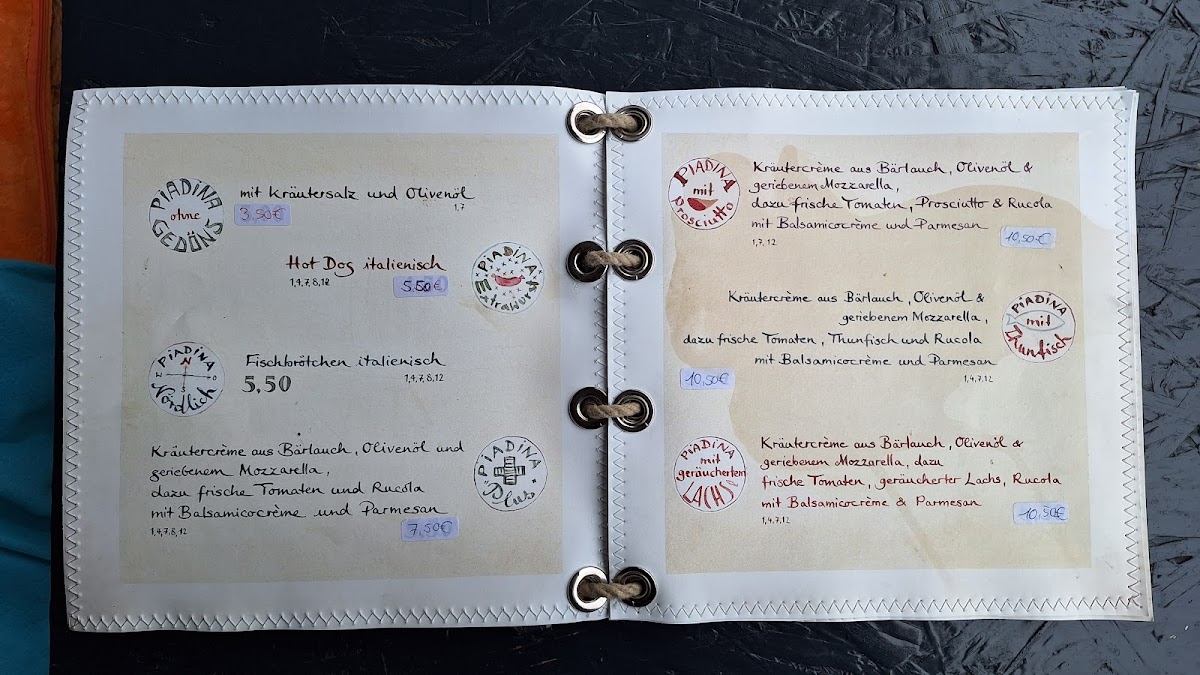 PIADINA
ohne
GEDÖNS
mit Kräutersalz und Olivenöl
1,7
3,50€
Hot Dog italienisch
1,4,7,8,12
5,50€
PIADINA
Extrawurst
PIADINA
N
W O
S
Nördlich
Fischbrötchen italienisch
5,50
1,4,7,8,12
Kräutercrème aus Bärlauch, Olivenöl und
geriebenem Mozzarella,
dazu frische Tomaten und Rucola
mit Balsamicocrème und Parmesan
1,4,7,8,12
7,50€
PIADINA
Plus
PIADINA
mit
Prosciutto
Kräutercrème aus Bärlauch, Olivenöl &
geriebenem Mozzarella,
dazu frische Tomaten, Prosciutto & Rucola
mit Balsamicocrème und Parmesan
1,7,12
10,50€
Kräutercrème aus Bärlauch, Olivenöl &
geriebenem Mozzarella,
dazu frische Tomaten, Thunfisch und Rucola
mit Balsamicocrème und Parmesan
1,4,7,12
10,50€
PIADINA
mit
Thunfisch
PIADINA
mit
geräuchertem
LACHS
Kräutercrème aus Bärlauch, Olivenöl &
geriebenem Mozzarella, dazu
frische Tomaten, geräucherter Lachs, Rucola
mit Balsamicocrème & Parmesan
1,4,7,12
10,50€